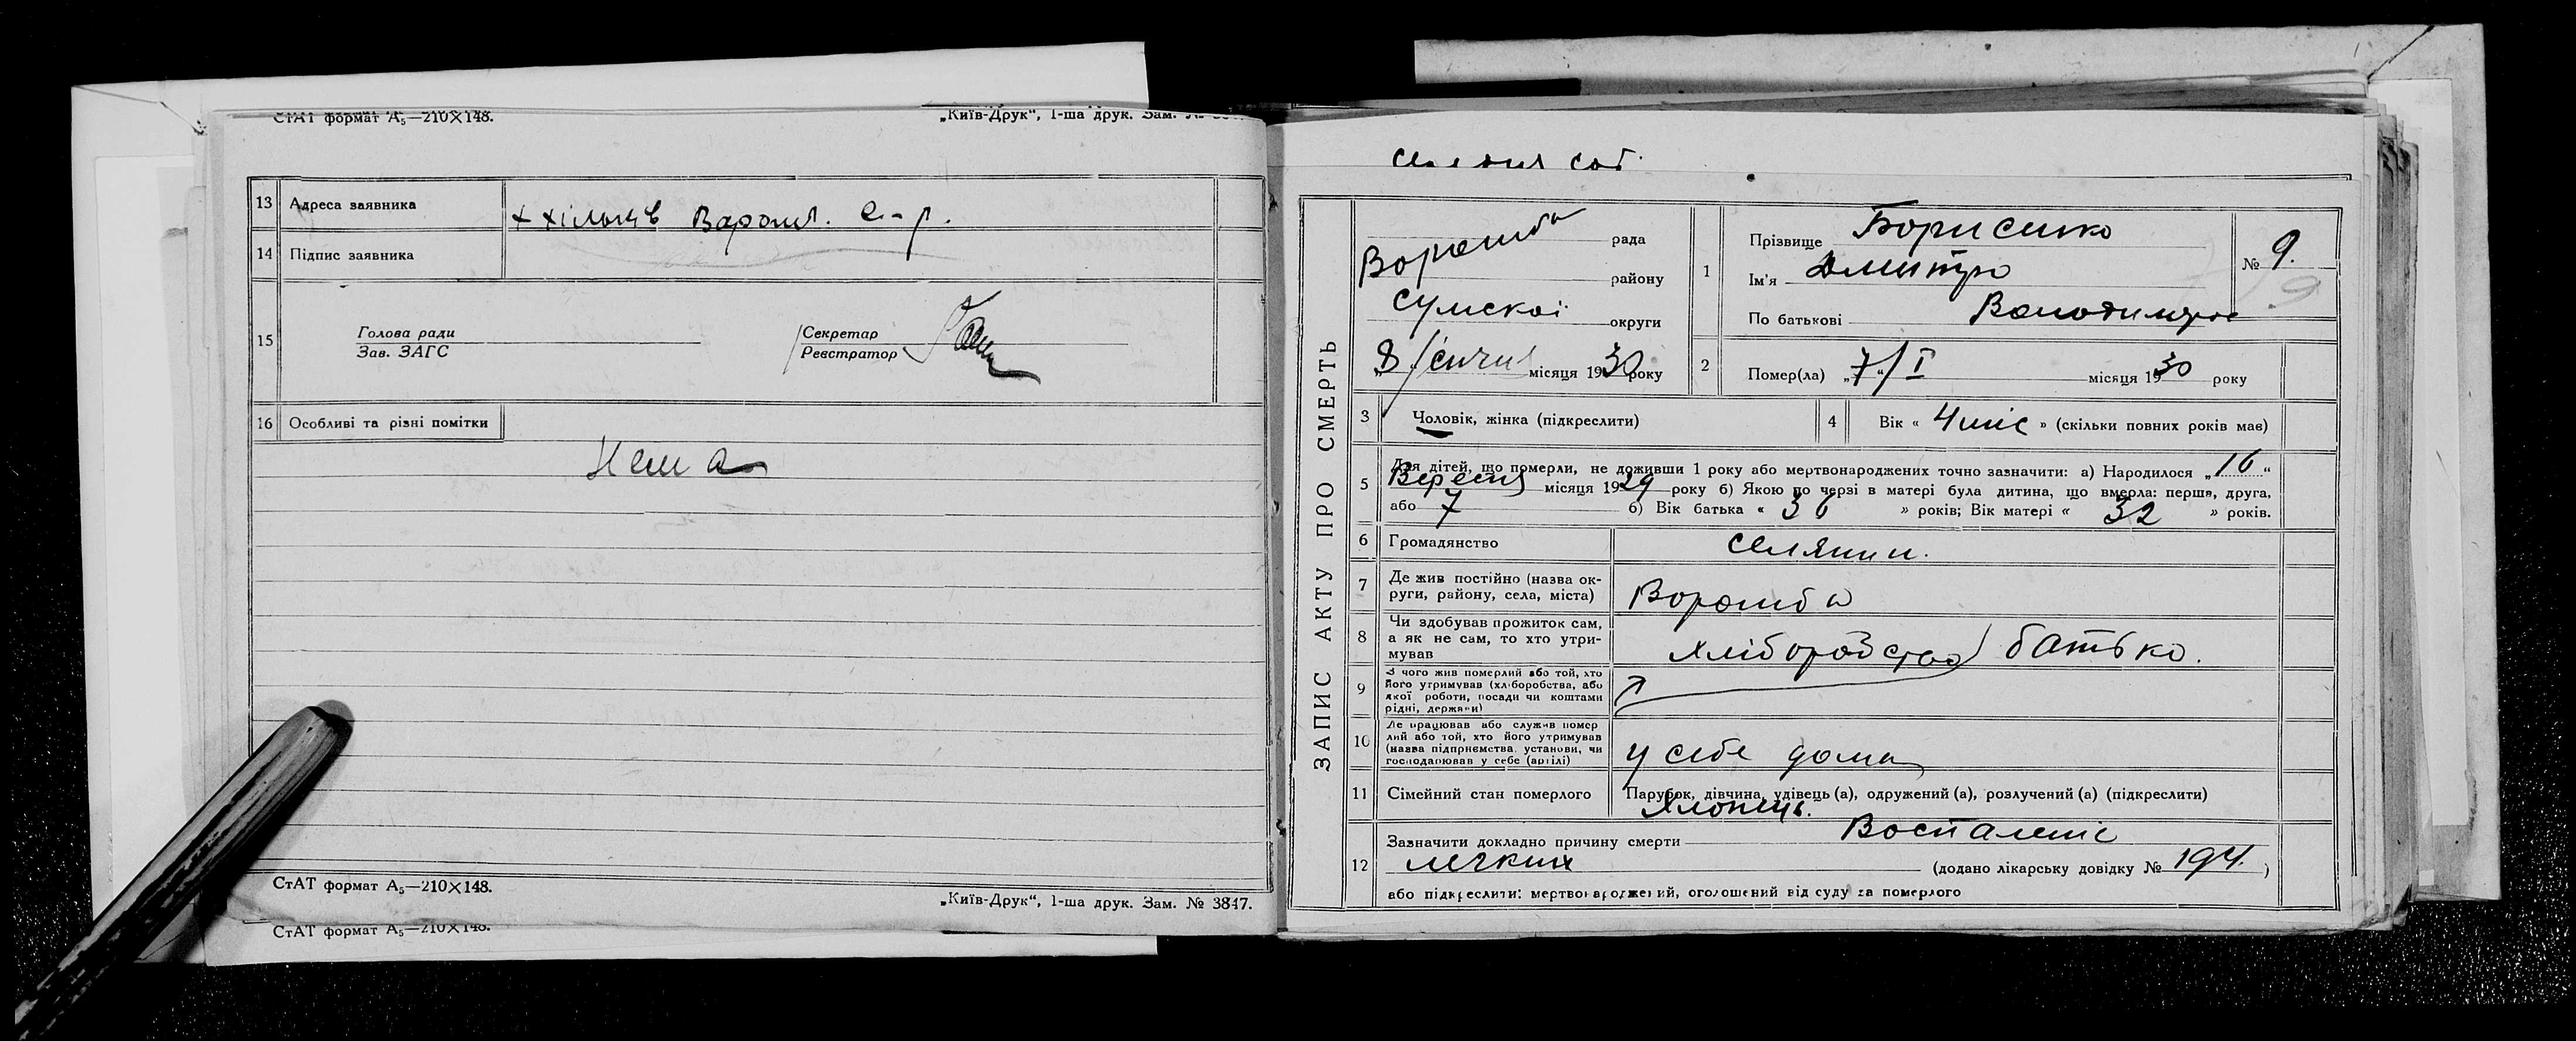 СтАТ формат А₅—210×148.
„Київ-Друк“, 1-ша друк. Зам. №
13 Адреса заявника
х Хільків Ворожб. с-р.
14 Підпис заявника
15 Голова ради
Зав. ЗАГС
Секретар
Реєстратор
16 Особливі та різні помітки
Нема
СтАТ формат А₅—210×148.
„Київ-Друк“, 1-ша друк. Зам. № 3847.
СтАТ формат А₅—210×148.
ЗАПИС АКТУ ПРО СМЕРТЬ
Ворожба рада
району
Сумської округи
„8“ січня місяця 1930 року
1 Прізвище Борисенко
Ім'я Дмитро
По батькові Володимиров
№ 9.
9
2 Помер(ла) „7“/I місяця 1930 року
3 Чоловік, жінка (підкреслити)
4 Вік « 4 міс » (скільки повних років має)
5 Для дітей, що померли, не доживши 1 року або мертвонароджених точно зазначити: а) Народилося „16“
Вересня місяця 1929 року б) Якою по черзі в матері була дитина, що вмерла: перша, друга,
або 7 б) Вік батька « 36 » років; Вік матері « 32 » років.
6 Громадянство селянин.
7 Де жив постійно (назва ок-
руги, району, села, міста) Ворожба
8 Чи здобував прожиток сам,
а як не сам, то хто утри-
мував хліборобство батько.
9 З чого жив померлий або той, хто
його утримував (хліборобства, або
якої роботи, посади чи коштами
рідні, держави)
10 Де працював або служив помер
лий або той, хто його утримував
(назва підприємства, установи, чи
господарював у себе (артілі) у себе дома
11 Сімейний стан померлого Парубок, дівчина, удівець (а), одружений (а), розлучений (а) (підкреслити)
Хлопець.
12 Зазначити докладно причину смерти Воспаленіє
легких (додано лікарську довідку № 194. )
або підкреслити: мертвонароджений, оголошений від суду за померлого